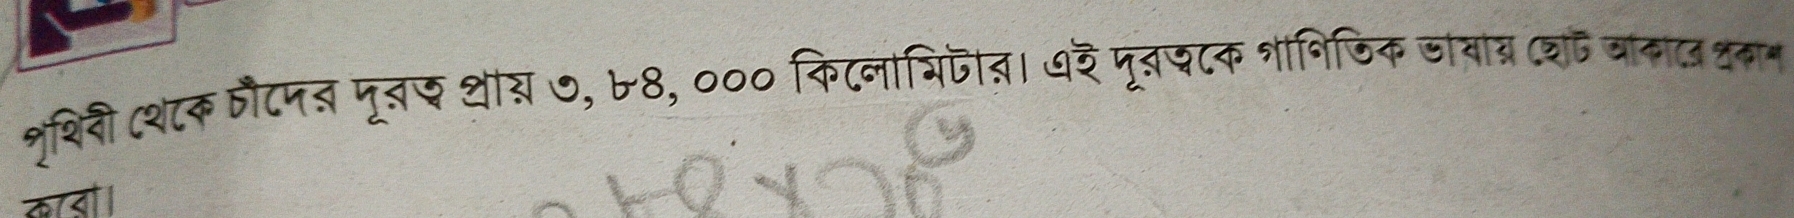 পৃথিবী থেকে চাঁদের দূরত্ব প্রায় ৩, ৮৪, ০০০ কিলোমিটার। এই দূরত্বকে গাণিতিক ভাষায় ছোট আকারে প্রকাশ
করো।